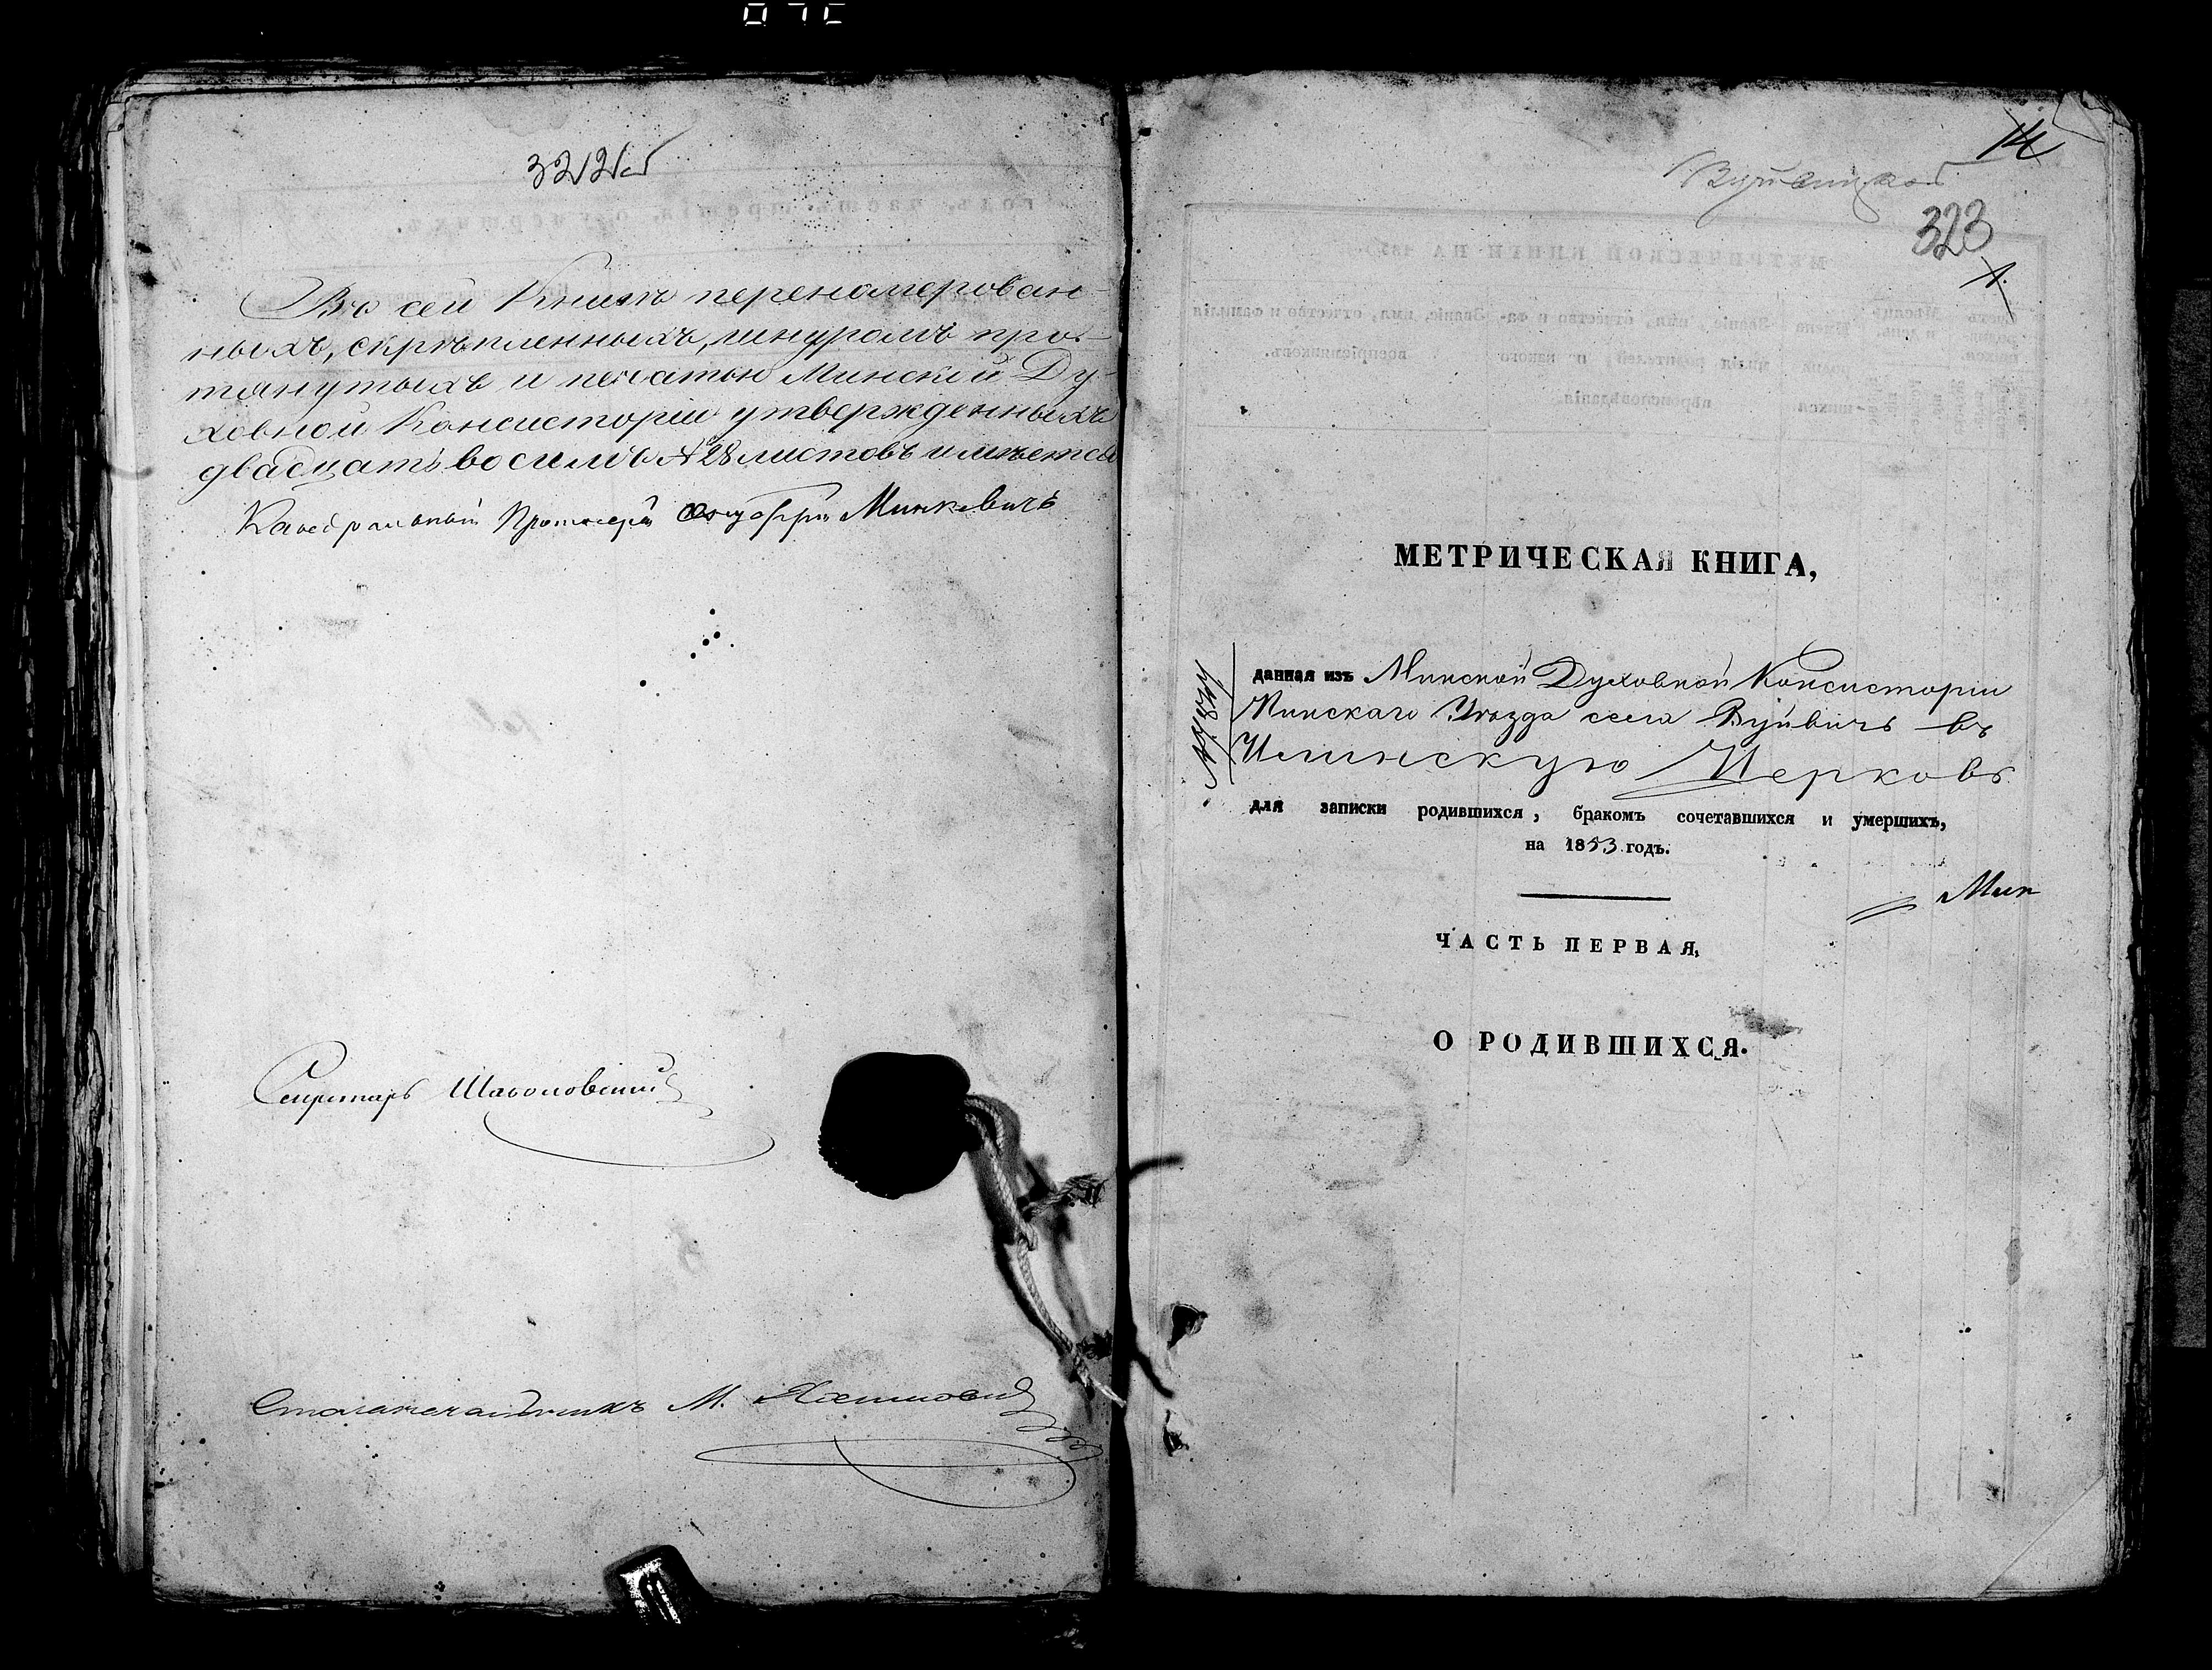 322об
Въ сей Книгѣ перенамерован-
ныхъ, скрѣпленныхъ, шнуромъ про-
тянутыхъ и печатью Минской Ду-
ховной Консисторіи утвержденныхъ
двадцать восимь № 28 листовъ имѣется
Каѳедральный Протоіерей Минкевичъ
Секретарь
Столоначальникъ М.
14
323
1.
МЕТРИЧЕСКАЯ КНИГА,
данная изъ Минской Духовной Консисторіи
Пинскаго Уѣзда села Вуйвичъ въ
Илинскую Церковь
для записки родившихся, бракомъ сочетавшихся и умершихъ,
на 1853 годъ.
Мин
ЧАСТЬ ПЕРВАЯ,
О РОДИВШИХСЯ.